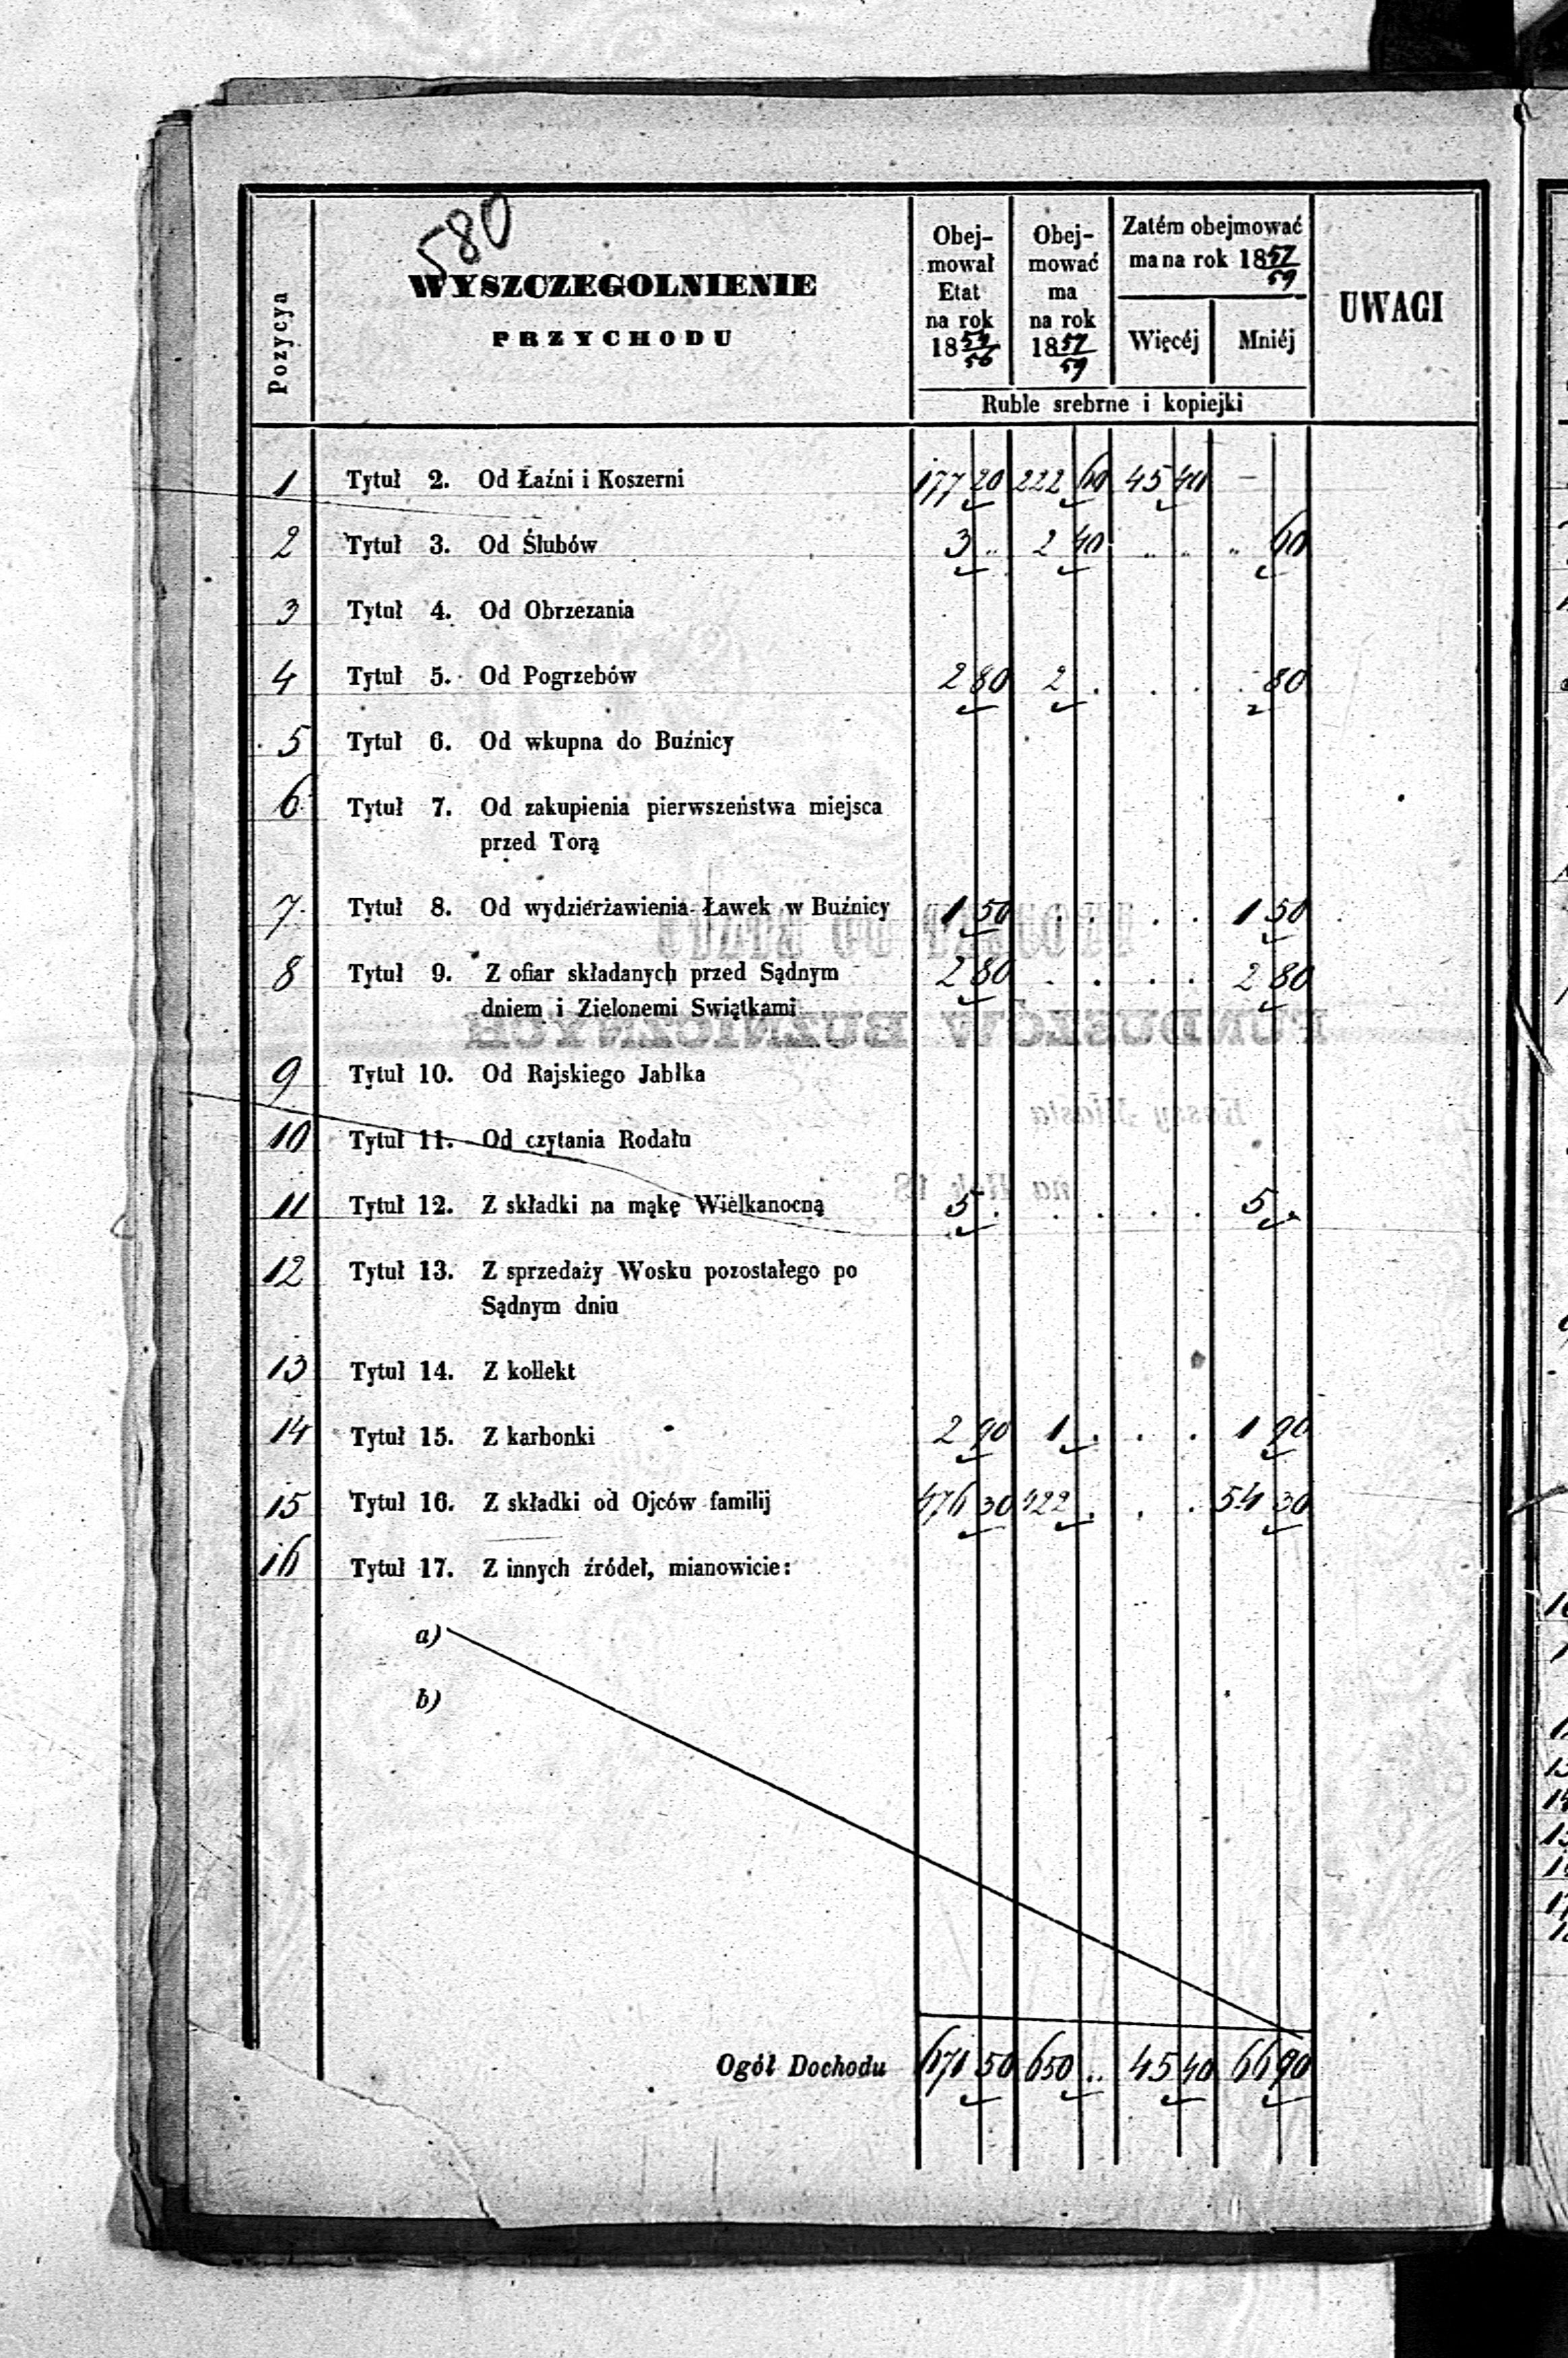 580
Pozycya
WYSZCZEGOLNIENIE
PRZYCHODU
Obej-
mował
Etat
na rok
18 54/56
Obej-
mować
ma
na rok
18 57/59
Zatém obejmować
ma na rok 18 57/59
Więcéj Mniéj
Ruble srebrne i kopiejki
UWAGI
1 Tytuł 2. Od Łaźni i Koszerni 177 20 222 60 45 40 —
2 Tytuł 3. Od Ślubów 3 .. 2 40 .. .. .. 60
3 Tytuł 4. Od Obrzezania
4 Tytuł 5. Od Pogrzebów 2 80 2 . . . . 80
5 Tytuł 6. Od wkupna do Buźnicy
6 Tytuł 7. Od zakupienia pierwszeństwa miejsca
przed Torą
7 Tytuł 8. Od wydzierżawienia Ławek w Buźnicy 1 50 . . . . 1 50
8 Tytuł 9. Z ofiar składanych przed Sądnym
dniem i Zielonemi Swiątkami 2 80 . . . . 2 80
9 Tytuł 10. Od Rajskiego Jabłka
10 Tytuł 11. Od czytania Rodału
11 Tytuł 12. Z składki na mąkę Wielkanocną 5 . . . . . 5 .
12 Tytuł 13. Z sprzedaży Wosku pozostałego po
Sądnym dniu
13 Tytuł 14. Z kollekt
14 Tytuł 15. Z karbonki 2 90 1 . . . 1 90
15 Tytuł 16. Z składki od Ojców familij 476 30 422 . . . 54 30
16 Tytuł 17. Z innych źródeł, mianowicie:
a)
b)
Ogół Dochodu 671 50 650 .. 45 40 66 90